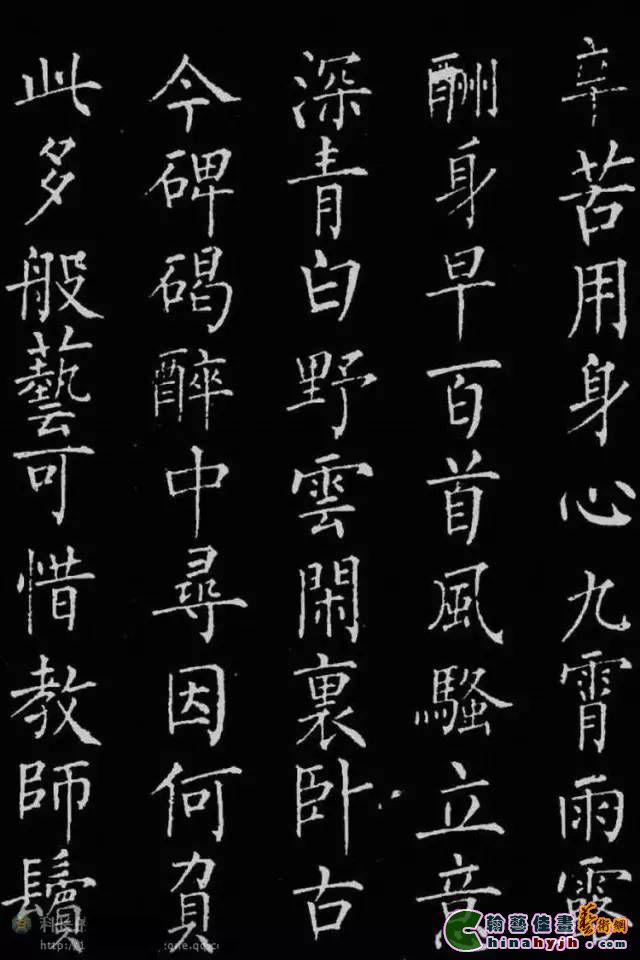 辛苦用身心九霄雨露
酬身早百首風騷立意
深青白野雲閑裏卧古
今碑碣醉中尋因何負
此多般藝可惜教師鬢
翰藝佳畫藝術網
Chinahyjh.com